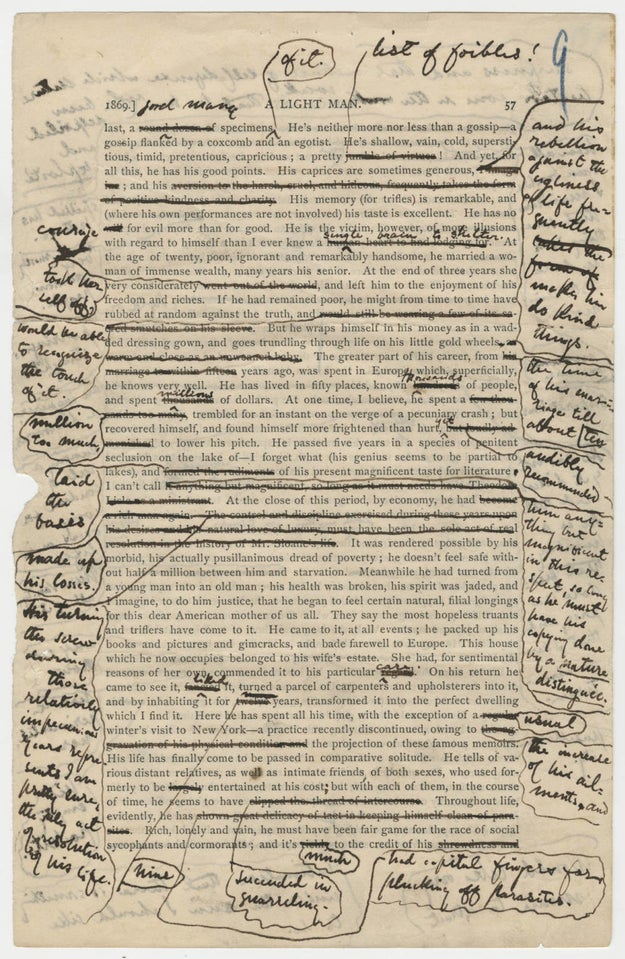 of it.
list of foibles!
9
1869.]
A LIGHT MAN.
57
last, a round dozen of specimens. He's neither more nor less than a gossip—a
gossip flanked by a coxcomb and an egotist. He's shallow, vain, cold, supersti-
tious, timid, pretentious, capricious; a pretty jumble of virtues! And yet, for
all this, he has his good points. His caprices are sometimes generous,
; and his aversion to the harsh, cruel, and hideous, frequently takes the form
of positive kindness and charity. His memory (for trifles) is remarkable, and
(where his own performances are not involved) his taste is excellent. He has no
for evil more than for good. He is the victim, however, of more illusions
single brain to shelter.
with regard to himself than I ever knew a human heart to find lodging for. At
the age of twenty, poor, ignorant and remarkably handsome, he married a wo-
man of immense wealth, many years his senior. At the end of three years she
very considerately went out of the world, and left him to the enjoyment of his
freedom and riches. If he had remained poor, he might from time to time have
rubbed at random against the truth, and would still be wearing a few of its sa-
cred smutches on his sleeve. But he wraps himself in his money as in a wad-
ded dressing gown, and goes trundling through life on his little gold wheels, as
warm and close as an unweaned baby. The greater part of his career, from his
marriage to within fifteen years ago, was spent in Europe, which, superficially,
thousands
he knows very well. He has lived in fifty places, known of people,
millions
and spent thousands of dollars. At one time, I believe, he spent a few thou-
sands too many, trembled for an instant on the verge of a pecuniary crash; but
yet
recovered himself, and found himself more frightened than hurt, but
to lower his pitch. He passed five years in a species of penitent
seclusion on the lake of—I forget what (his genius seems to be partial to
lakes), and formed the rudiments of his present magnificent taste for literature;
I can't call it anything but magnificent, so long as it must needs have Theodore
Lisle as a ministrant. At the close of this period, by economy, he had become
a rich man again. The control and discipline exercised during these years upon
his desires and his natural love of luxury, must have been the sole act of real
resolution in the history of Mr. Sloane's life. It was rendered possible by his
morbid, his actually pusillanimous dread of poverty; he doesn't feel safe with-
out half a million between him and starvation. Meanwhile he had turned from
a young man into an old man; his health was broken, his spirit was jaded, and
I imagine, to do him justice, that he began to feel certain natural, filial longings
for this dear American mother of us all. They say the most hopeless truants
and triflers have come to it. He came to it, at all events; he packed up his
books and pictures and gimcracks, and bade farewell to Europe. This house
which he now occupies belonged to his wife's estate. She had, for sentimental
care.
reasons of her own, commended it to his particular . On his return he
came to see it, it, turned a parcel of carpenters and upholsterers into it,
and by inhabiting it for years, transformed it into the perfect dwelling
which I find it. Here he has spent all his time, with the exception of a regular
winter's visit to New York—a practice recently discontinued, owing to the ag-
gravation of his physical condition and the projection of these famous memoirs.
His life has finally come to be passed in comparative solitude. He tells of va-
rious distant relatives, as well as intimate friends of both sexes, who used for-
merly to be largely entertained at his cost; but with each of them, in the course
of time, he seems to have clipped the thread of intercourse. Throughout life,
evidently, he has shown great delicacy of tact in keeping himself clean of para-
sites. Rich, lonely and vain, he must have been fair game for the race of social
sycophants and cormorants; and it's to the credit of his shrewdness and
much
courage
took her-
self off;
would be able
to recognize
the touch
of it.
million
too much,
laid
the
basis
made up
his losses.
His turning
the screw
during
those
relatively
impecunious
years repre-
sents I am
pretty sure,
the only act
of resolution
of his life.
nine
succeeded in
quarreling.
had capital fingers for
plucking off parasites.
and his
rebellion
against the
ugliness
of life fre-
quently
takes the
form of
makes him
do kind
things.
the time
of his mar-
riage till
about ten
audibly
recommended
him any-
thing but
magnificent
in this re-
spect, so long
as he must
have his
copying done
by a nature
distinguée.
usual
the increase
of his ail-
ments, and